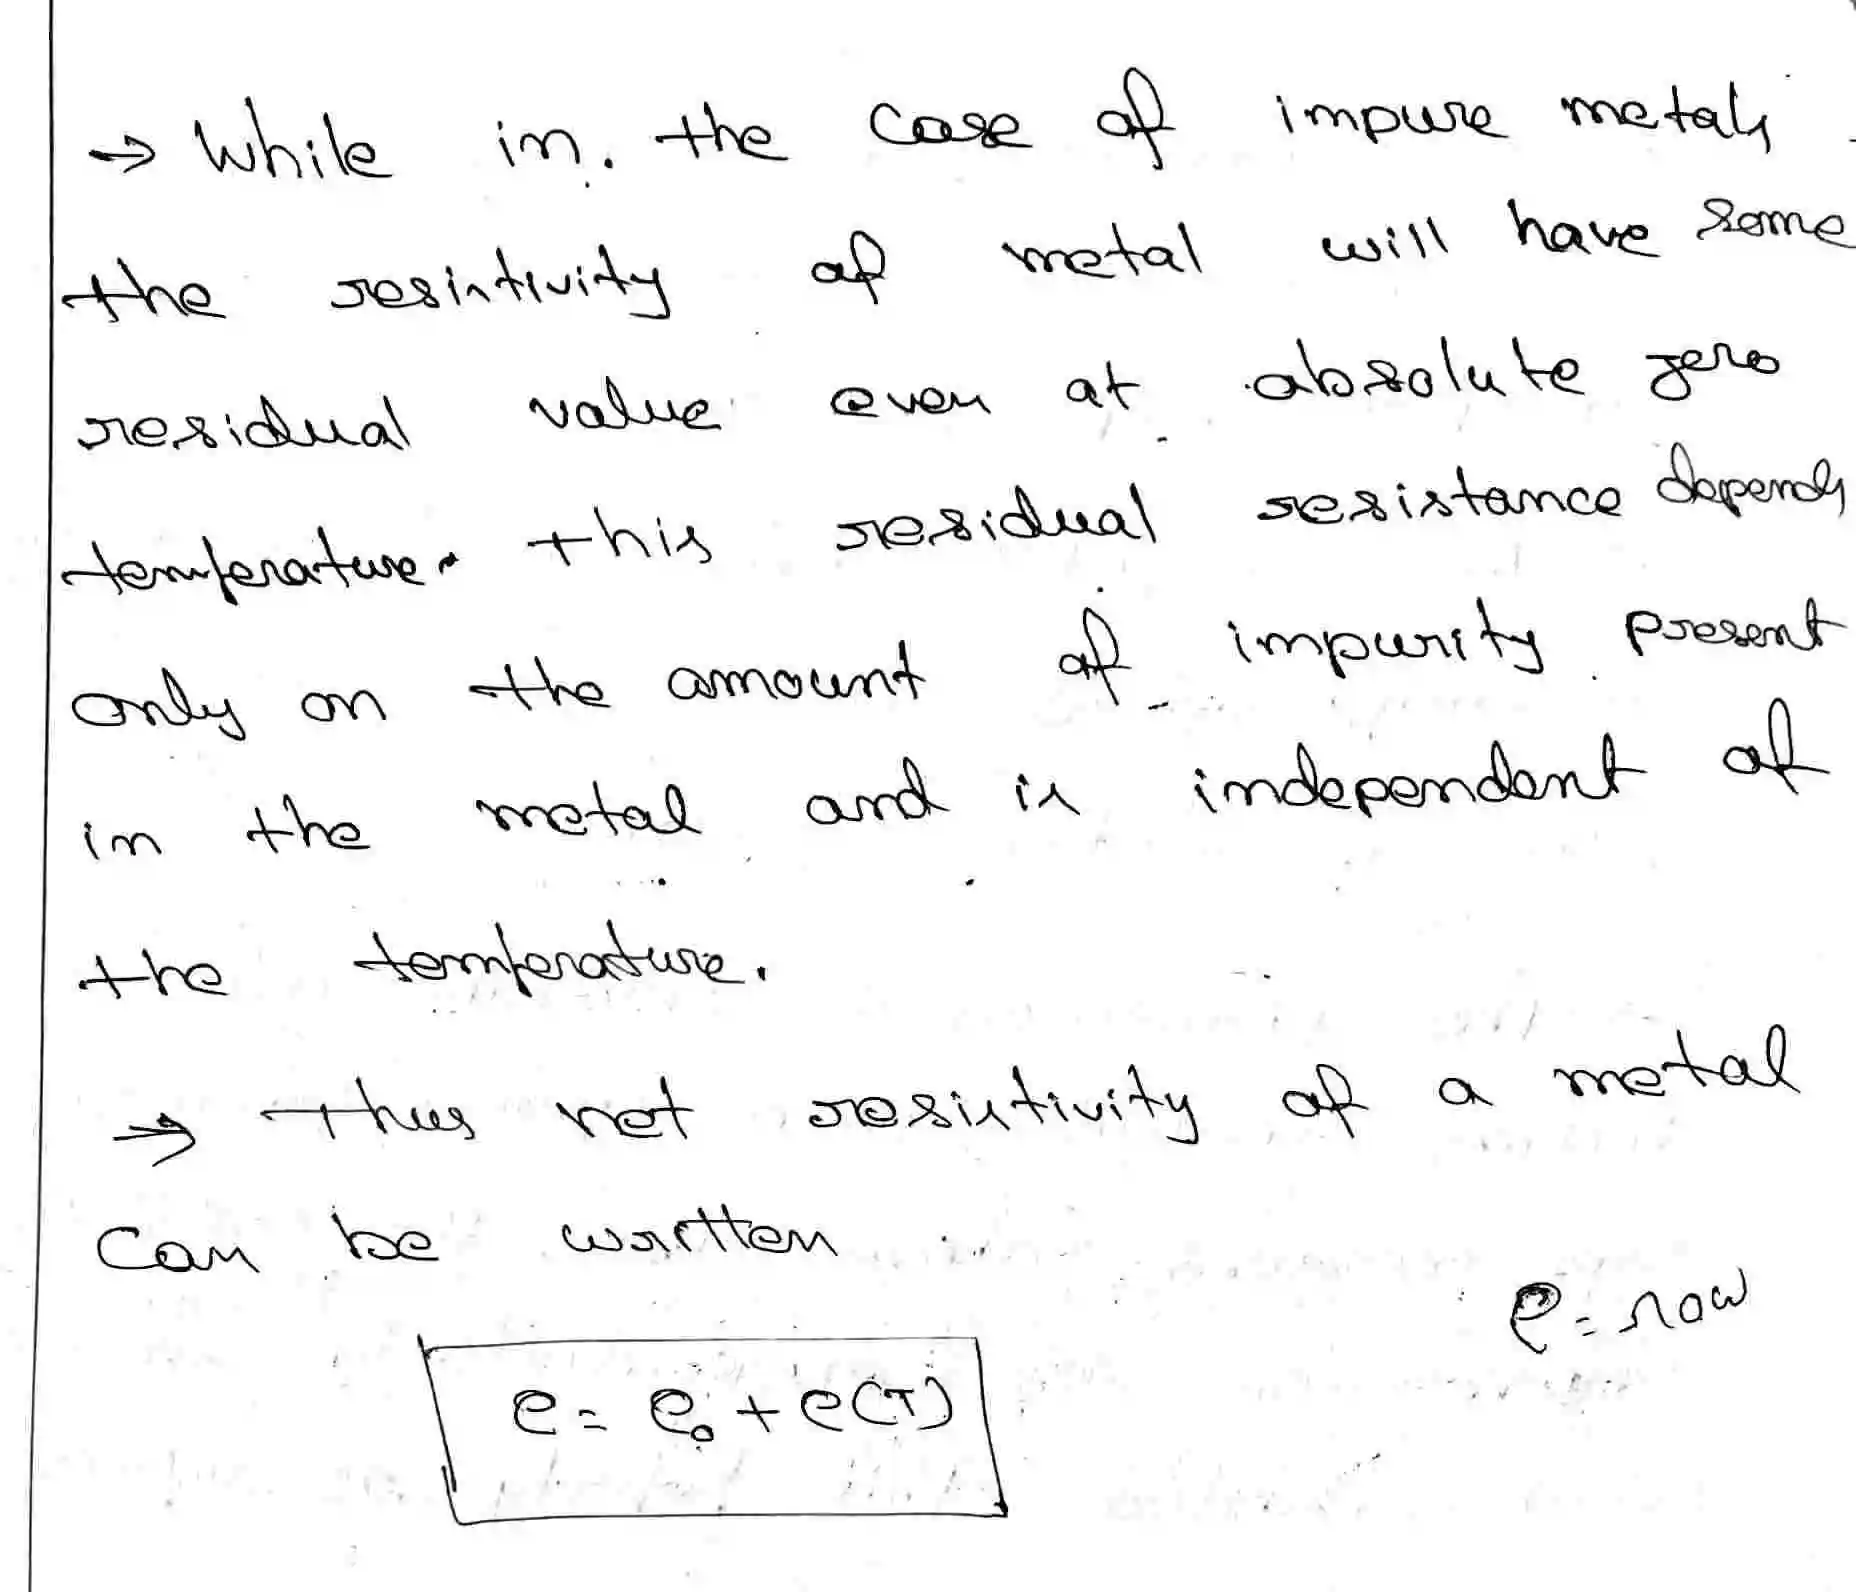 → While in. the case of impure metals
the resistivity of metal will have some
residual value even at absolute zero
temperature. this residual resistance depends
only on the amount of impurity present
in the metal and is independent of
the temperature.
→ thus net resistivity of a metal
can be written
ρ = row
ρ = ρ₀ + ρ(T)